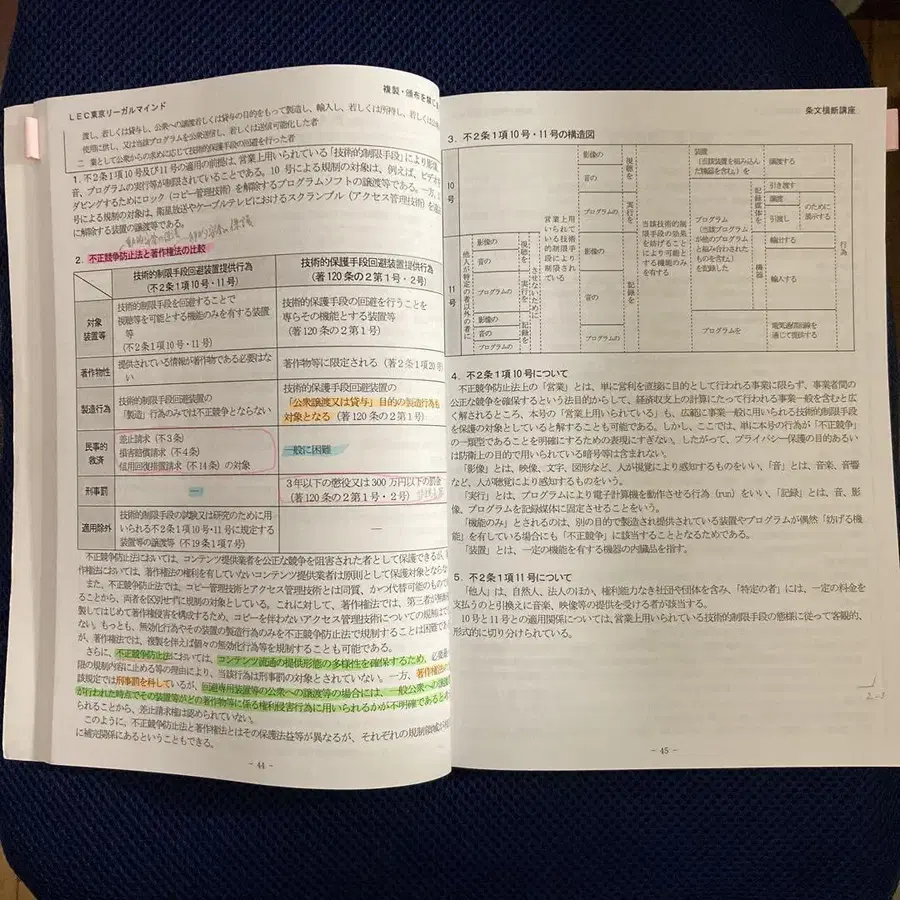 LEC東京リーガルマインド
複製・頒布を禁じ
渡し、若しくは貸与し、公衆への譲渡若しくは貸与の目的をもって製造し、輸入し、若しくは所持し、若しくは公
使用に供し、又は当該プログラムを公衆送信し、若しくは送信可能化した者
二 業として公衆からの求めに応じて技術的保護手段の回避を行った者
1．不2条1項10号及び11号の適用の前提は、営業上用いられている「技術的制限手段」により影像、
音、プログラムの実行等が制限されていることである。10 号による規制の対象は、例えば、ビデオを
ダビングするためにロック（コピー管理技術）を解除するプログラムソフトの譲渡等である。一方、
号による規制の対象は、衛星放送やケーブルテレビにおけるスクランブル（アクセス管理技術）を
に解除する装置の譲渡等である。
2．不正競争防止法と著作権法の比較
技術的制限手段回避装置提供行為
（不2条1項10号・11号）
技術的保護手段回避装置提供行為
（著120条の2第1号・2号）
対象
装置等
技術的制限手段を回避することで
視聴等を可能とする機能のみを有する装置
等
（不2条1項10号・11号）
技術的保護手段の回避を行うことを
専らその機能とする装置等
（著120条の2第1号）
著作物性
提供されている情報が著作物である必要はな
い
著作物等に限定される（著2条1項20号
製造行為
技術的制限手段回避装置の
「製造」行為のみでは不正競争とならない
技術的保護手段回避装置の
「公衆譲渡又は貸与」目的の製造行為も
対象となる（著120条の2第1号）
民事的
救済
差止請求（不3条）
損害賠償請求（不4条）
信用回復措置請求（不14条）の対象
一般に困難
刑事罰
―
3年以下の懲役又は300万円以下の罰金
（著120条の2第1号・2号）
適用除外
技術的制限手段の試験又は研究のために用
いられる不2条1項10号・11号に規定する
装置等の譲渡等（不19条1項7号）
―
不正競争防止法においては、コンテンツ提供業者を公正な競争を阻害された者として保護できるが、
作権法においては、著作権法の権利を有していないコンテンツ提供業者は原則として保護対象となら
また、不正競争防止法では、コピー管理技術とアクセス管理技術とは同質、かつ代替可能のもので
ることから、両者を区別せずに規制の対象としている。これに対して、著作権法では、第三者が無断
製してはじめて著作権侵害を構成するため、コピーを伴わないアクセス管理技術についての規制は
ない。もっとも、無効化行為やその装置の製造行為のみを不正競争防止法で規制することは困難で
が、著作権法では、複製を伴えば個々の無効化行為等を規制することも可能である。
さらに、不正競争防止法においては、コンテンツ流通の提供形態の多様性を確保するため、必要最
限の規制内容に止める等の理由により、当該行為は刑事罰の対象とされていない。一方、著作権法
該規定では刑事罰を科しているが、回避専用装置等の公衆への譲渡等の場合には、一般公衆への
が行われた時点でその装置等がどの著作物等に係る権利侵害行為に用いられるかが不明確であると
られることから、差止請求権は認められていない。
このように、不正競争防止法と著作権法とはその保護法益等が異なるが、それぞれの規制領域が
に補完関係にあるということもできる。
－ 44 －
条文横断講座
3．不2条1項10号・11号の構造図
10号
11号
他人が特定の者以外の者に
影像の
音の
プログラムの
視聴を
実行を
影像の
音の
プログラムの
記録を
させないために
営業上用いられている技術的制限手段により制限されている
影像の
音の
プログラムの
視聴を
実行を
影像の
音の
プログラムの
記録を
当該技術的制限手段の効果を妨げることにより可能とする機能のみを有する
装置
（当該装置を組み込んだ機器を含む。）を
プログラム
（当該プログラムが他のプログラムと組み合わされたものを含む。）を記録した
記録媒体を
機器
プログラムを
譲渡する
引き渡す
譲渡
引渡し
のために展示する
輸出する
輸入する
電気通信回線を通じて提供する
行為
4．不2条1項10号について
不正競争防止法上の「営業」とは、単に営利を直接に目的として行われる事業に限らず、事業者間の
公正な競争を確保するという法目的からして、経済収支上の計算にたって行われる事業一般を含むと広
く解されるところ、本号の「営業上用いられている」も、広範に事業一般に用いられる技術的制限手段
を保護の対象としていると解することも可能である。しかし、ここでは、単に本号の行為が「不正競争」
の一類型であることを明確にするための表現にすぎない。したがって、プライバシー保護の目的あるい
は防衛上の目的で用いられている暗号等は含まれない。
「影像」とは、映像、文字、図形など、人が視覚により感知するものをいい、「音」とは、音楽、音響
など、人が聴覚により感知するものをいう。
「実行」とは、プログラムにより電子計算機を動作させる行為（run）をいい、「記録」とは、音、影
像、プログラムを記録媒体に固定させることをいう。
「機能のみ」とされるのは、別の目的で製造され提供されている装置やプログラムが偶然「妨げる機
能」を有している場合にも「不正競争」に該当することとなるためである。
「装置」とは、一定の機能を有する機器の内臓品を指す。
5．不2条1項11号について
「他人」は、自然人、法人のほか、権利能力なき社団や団体を含み、「特定の者」には、一定の料金を
支払うのと引換えに音楽、映像等の提供を受ける者が該当する。
10号と11号との適用関係については、営業上用いられている技術的制限手段の態様に従って客観的、
形式的に切り分けられている。
2-3
－ 45 －